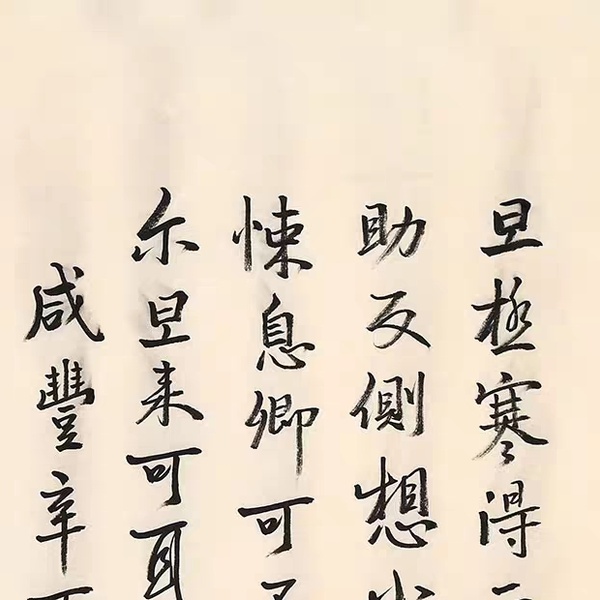 旦極寒得
助反側想
悚息卿可
尓旦来可耳
咸豐辛